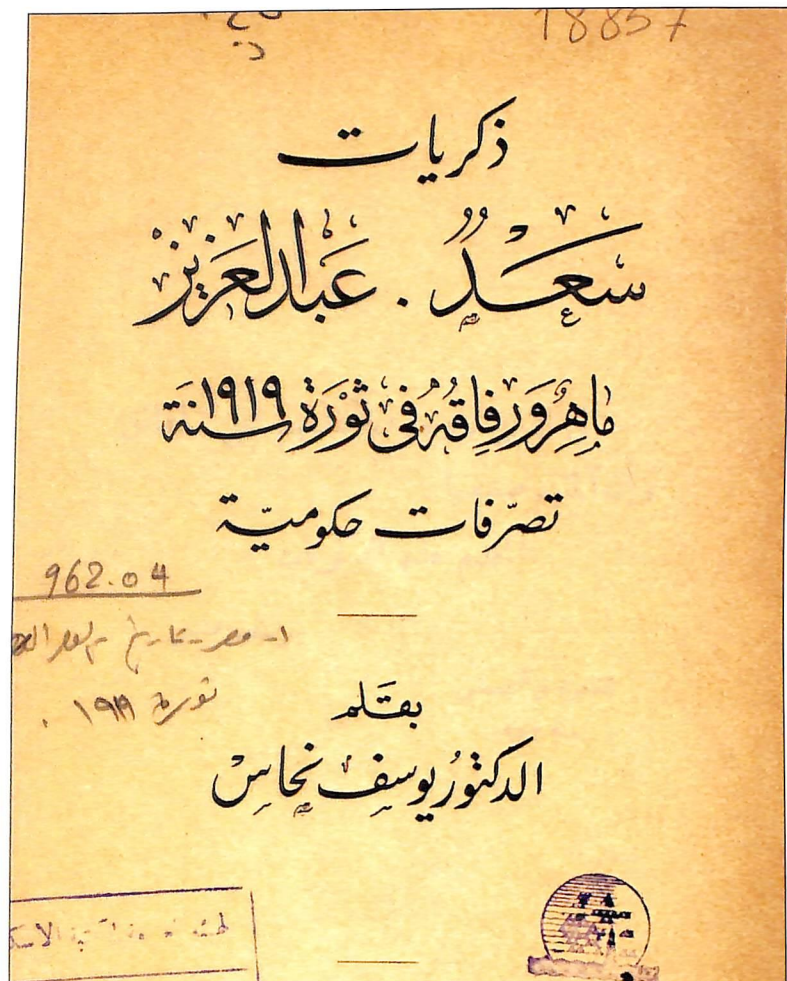 18857
ذكريات
سَعْدٌ . عَبدالعَزيز
مَاهِرٌ وَرِفاقُهُ فى ثَوْرَة سَنَة ١٩١٩
تصرّفات حكوميّة
962.04
١- مصر - تاريخ -
ثورة ١٩١٩ .
بقَلم
الدكتورُ يوسف نحاسْ